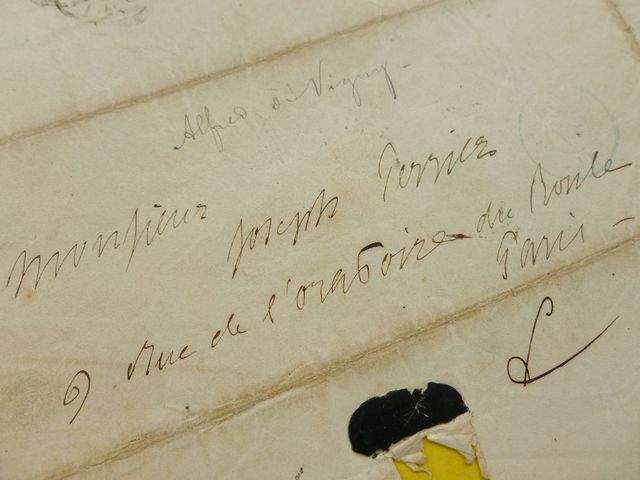 Alfred de Vigny -
Monsieur
Joseph Perrier
9 rue de l'oratoire du Roule
Paris -